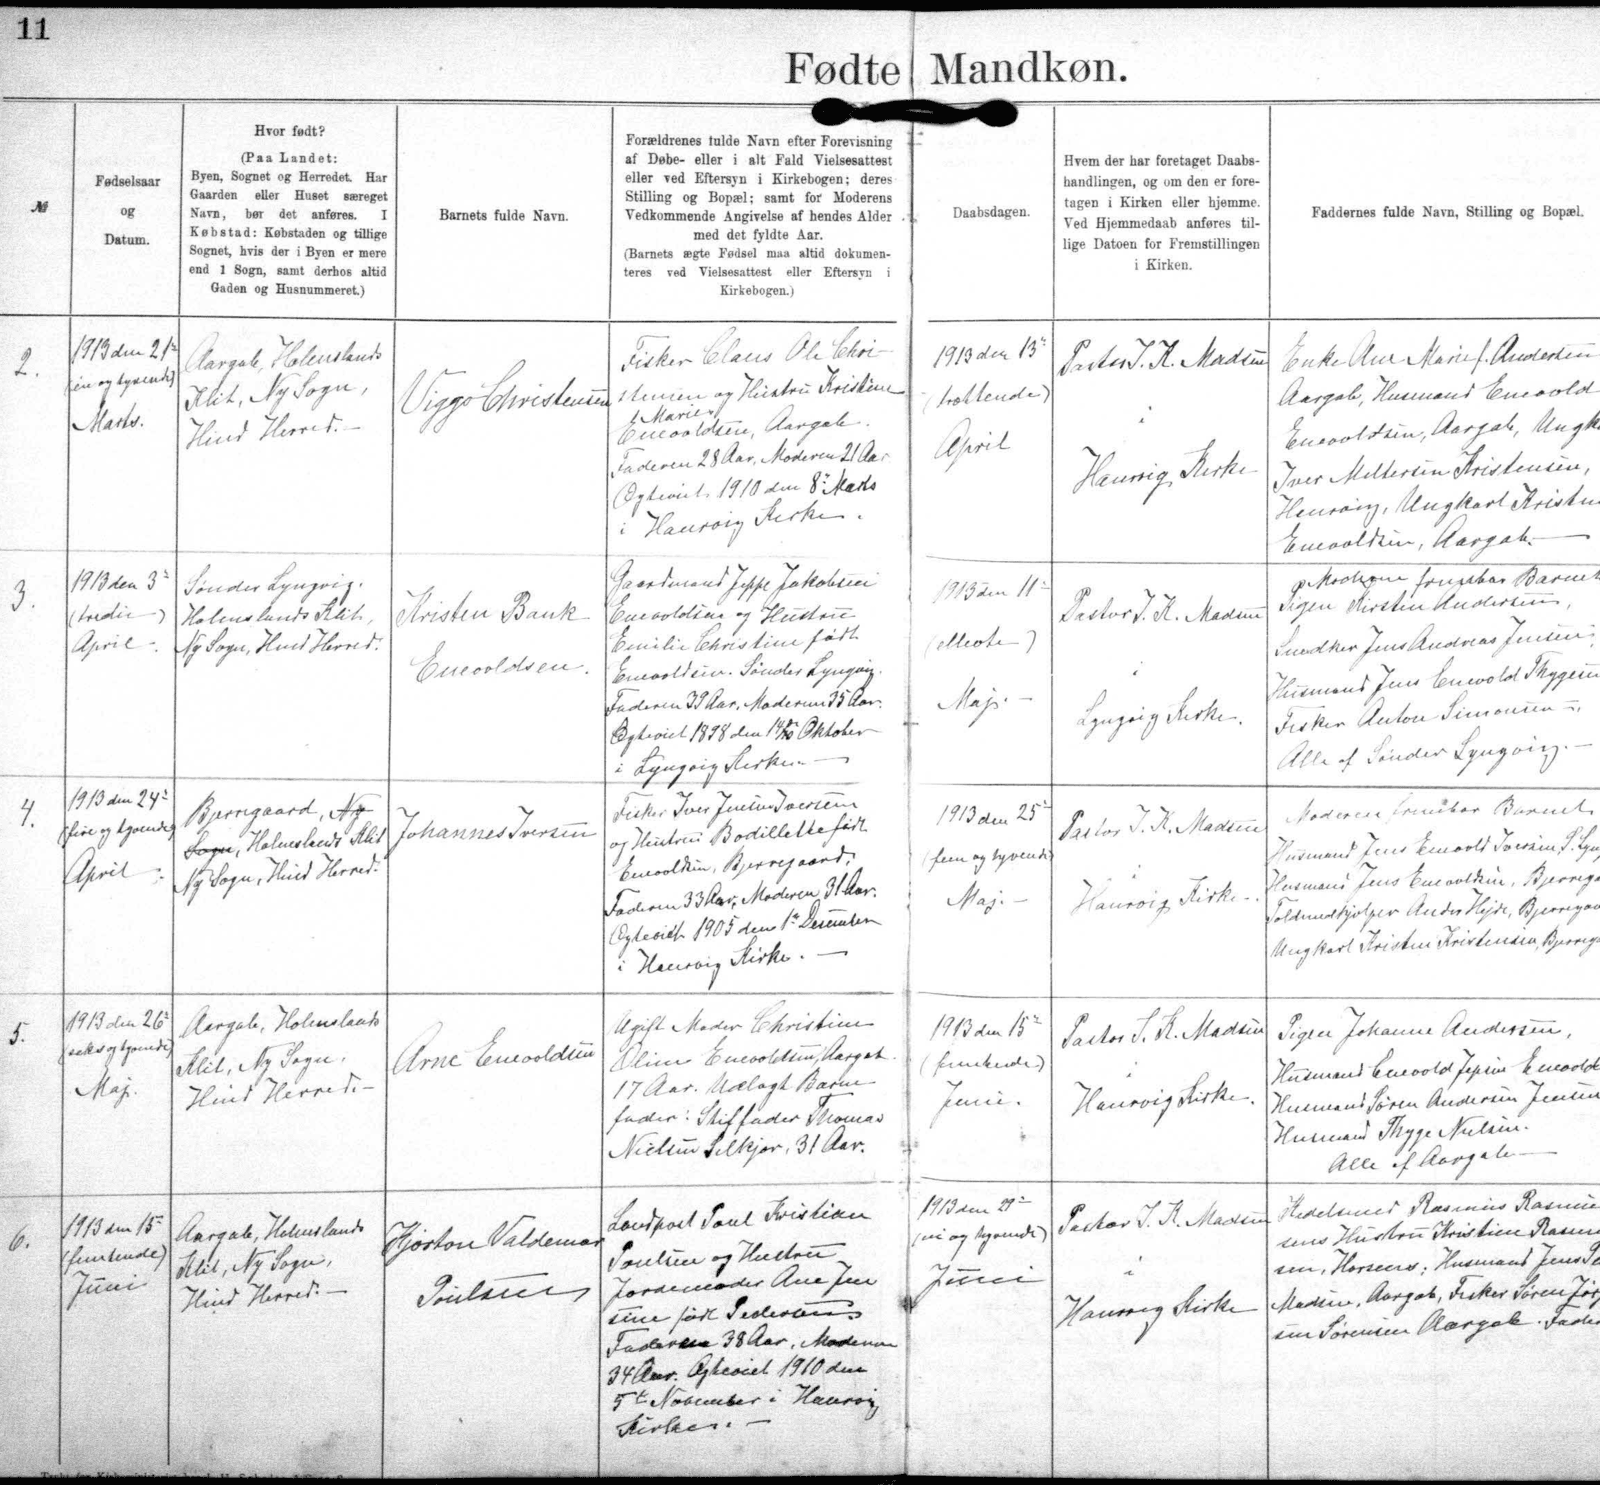 11
Fødte Mandkøn.
№
Fødselsaar
og
Datum.
Hvor født?
(Paa Landet:
Byen, Sognet og Herredet. Har
Gaarden eller Huset særeget
Navn, bør det anføres. I
Købstad: Købstaden og tillige
Sognet, hvis der i Byen er mere
end 1 Sogn, samt derhos altid
Gaden og Husnummeret.)
Barnets fulde Navn.
Forældrenes fulde Navn efter Forevisning
af Døbe- eller i alt Fald Vielsesattest
eller ved Eftersyn i Kirkebogen; deres
Stilling og Bopæl; samt for Moderens
Vedkommende Angivelse af hendes Alder
med det fyldte Aar.
(Barnets ægte Fødsel maa altid dokumen-
teres ved Vielsesattest eller Eftersyn i
Kirkebogen.)
Daabsdagen.
Hvem der har foretaget Daabs-
handlingen, og om den er fore-
tagen i Kirken eller hjemme.
Ved Hjemmedaab anføres til-
lige Datoen for Fremstillingen
i Kirken.
Faddernes fulde Navn, Stilling og Bopæl.
2.
1913 den 21de
(en og tyvende)
Marts.
Aargab, Holmslands
Klit, Ny Sogn,
Hind Herred.
Viggo Christensen
Fisker Claus Ole Chri-
stensen og Hustru Kristine
Marie
Enevoldsen, Aargab.
Faderen 28 Aar, Moderen 21 Aar
Ægteviet 1910 den 8de Marts
i Haurvig Kirke.
1913 den 13de
(trettende)
April
Pastor J. K. Madsen
i
Haurvig Kirke
Enke Ane Marie f. Andersen
Aargab, Husmand Enevold
Enevoldsen, Aargab, Ungk
Iver Kristensen,
Haurvig, Ungkarl Kristen
Enevoldsen, Aargab.
3.
1913 den 3de
(tredie)
April
Sønder Lyngvig.
Holmslands Klit,
Ny Sogn, Hind Herred.
Kristen Bank
Enevoldsen.
Gaardmand Jeppe Jakobsen
Enevoldsen og Hustru
Emilie Christine født
Enevoldsen. Sønder Lyngvig.
Faderen 39 Aar, Moderen 35 Aar.
Ægteviet 1898 den Oktober
i Lyngvig Kirke.
1913 den 11te
(ellevte)
Maj.
Pastor J. K. Madsen
i
Lyngvig Kirke.
Moderen frembar Barnet
Pigen Kirstin Andersen,
Snedker Jens Andreas Jensen,
Husmand Jens Enevold Thygesen
Fisker Anton Simonsen,
Alle af Sønder Lyngvig.
4.
1913 den 24de
(fire og tyvende)
April
Bjerregaard, Ny
Sogn, Holmslands Klit
Ny Sogn, Hind Herred.
Johannes Iversen
Fisker Iver Jensen Iversen
og Hustru Bodil Mette født
Enevoldsen, Bjerregaard,
Faderen 33 Aar, Moderen 31 Aar.
Ægteviet 1905 den 1ste December
i Haurvig Kirke.
1913 den 25de
(fem og tyvende)
Maj.
Pastor J. K. Madsen
i
Haurvig Kirke.
Moderen frembar Barnet
Husmand Jens Enevold Iversen, S. Lyn
Husmand Jens Enevoldsen, Bjerrega
Anders Hejde, Bjerregaa
Ungkarl Kristen Kristensen, Bjerrega
5.
1913 den 26de
(seks og tyvende)
Maj.
Aargab, Holmslands
Klit, Ny Sogn,
Hind Herred.
Arne Enevoldsen
Ugift Moder Christine
Oline Enevoldsen, Aargab
17 Aar. Udlagt Barne
fader: Stiffader Thomas
Nielsen Selkjær, 31 Aar.
1913 den 15de
(femtende)
Juni.
Pastor J. K. Madsen
i
Haurvig Kirke.
Pigen Johanne Andersen,
Husmand Enevold Jepsen Enevolds
Husmand Søren Andersen Jensen
Husmand Thyge Nielsen.
Alle af Aargab
6.
1913 den 15de
(femtende)
Juni
Aargab, Holmslands
Klit, Ny Sogn,
Hind Herred.
Hjorton Valdemar
Poulsen
Landpost Poul Kristian
Poulsen og Hustru
Jordemoder Ane Jen
sine født Pedersen.
Faderen 38 Aar, Moderen
34 Aar. Ægteviet 1910 den
5te November i Haurvig
Kirke.
1913 den 29de
(ni og tyvende)
Juni
Pastor J. K. Madsen
i
Haurvig Kirke
Rasmus Rasmus
sens Hustru Kristine Rasmus
sen, Horsens; Husmand Jens P
Madsen, Aargab, Fisker Søren Jør
sen Sørensen Aargab. Fader